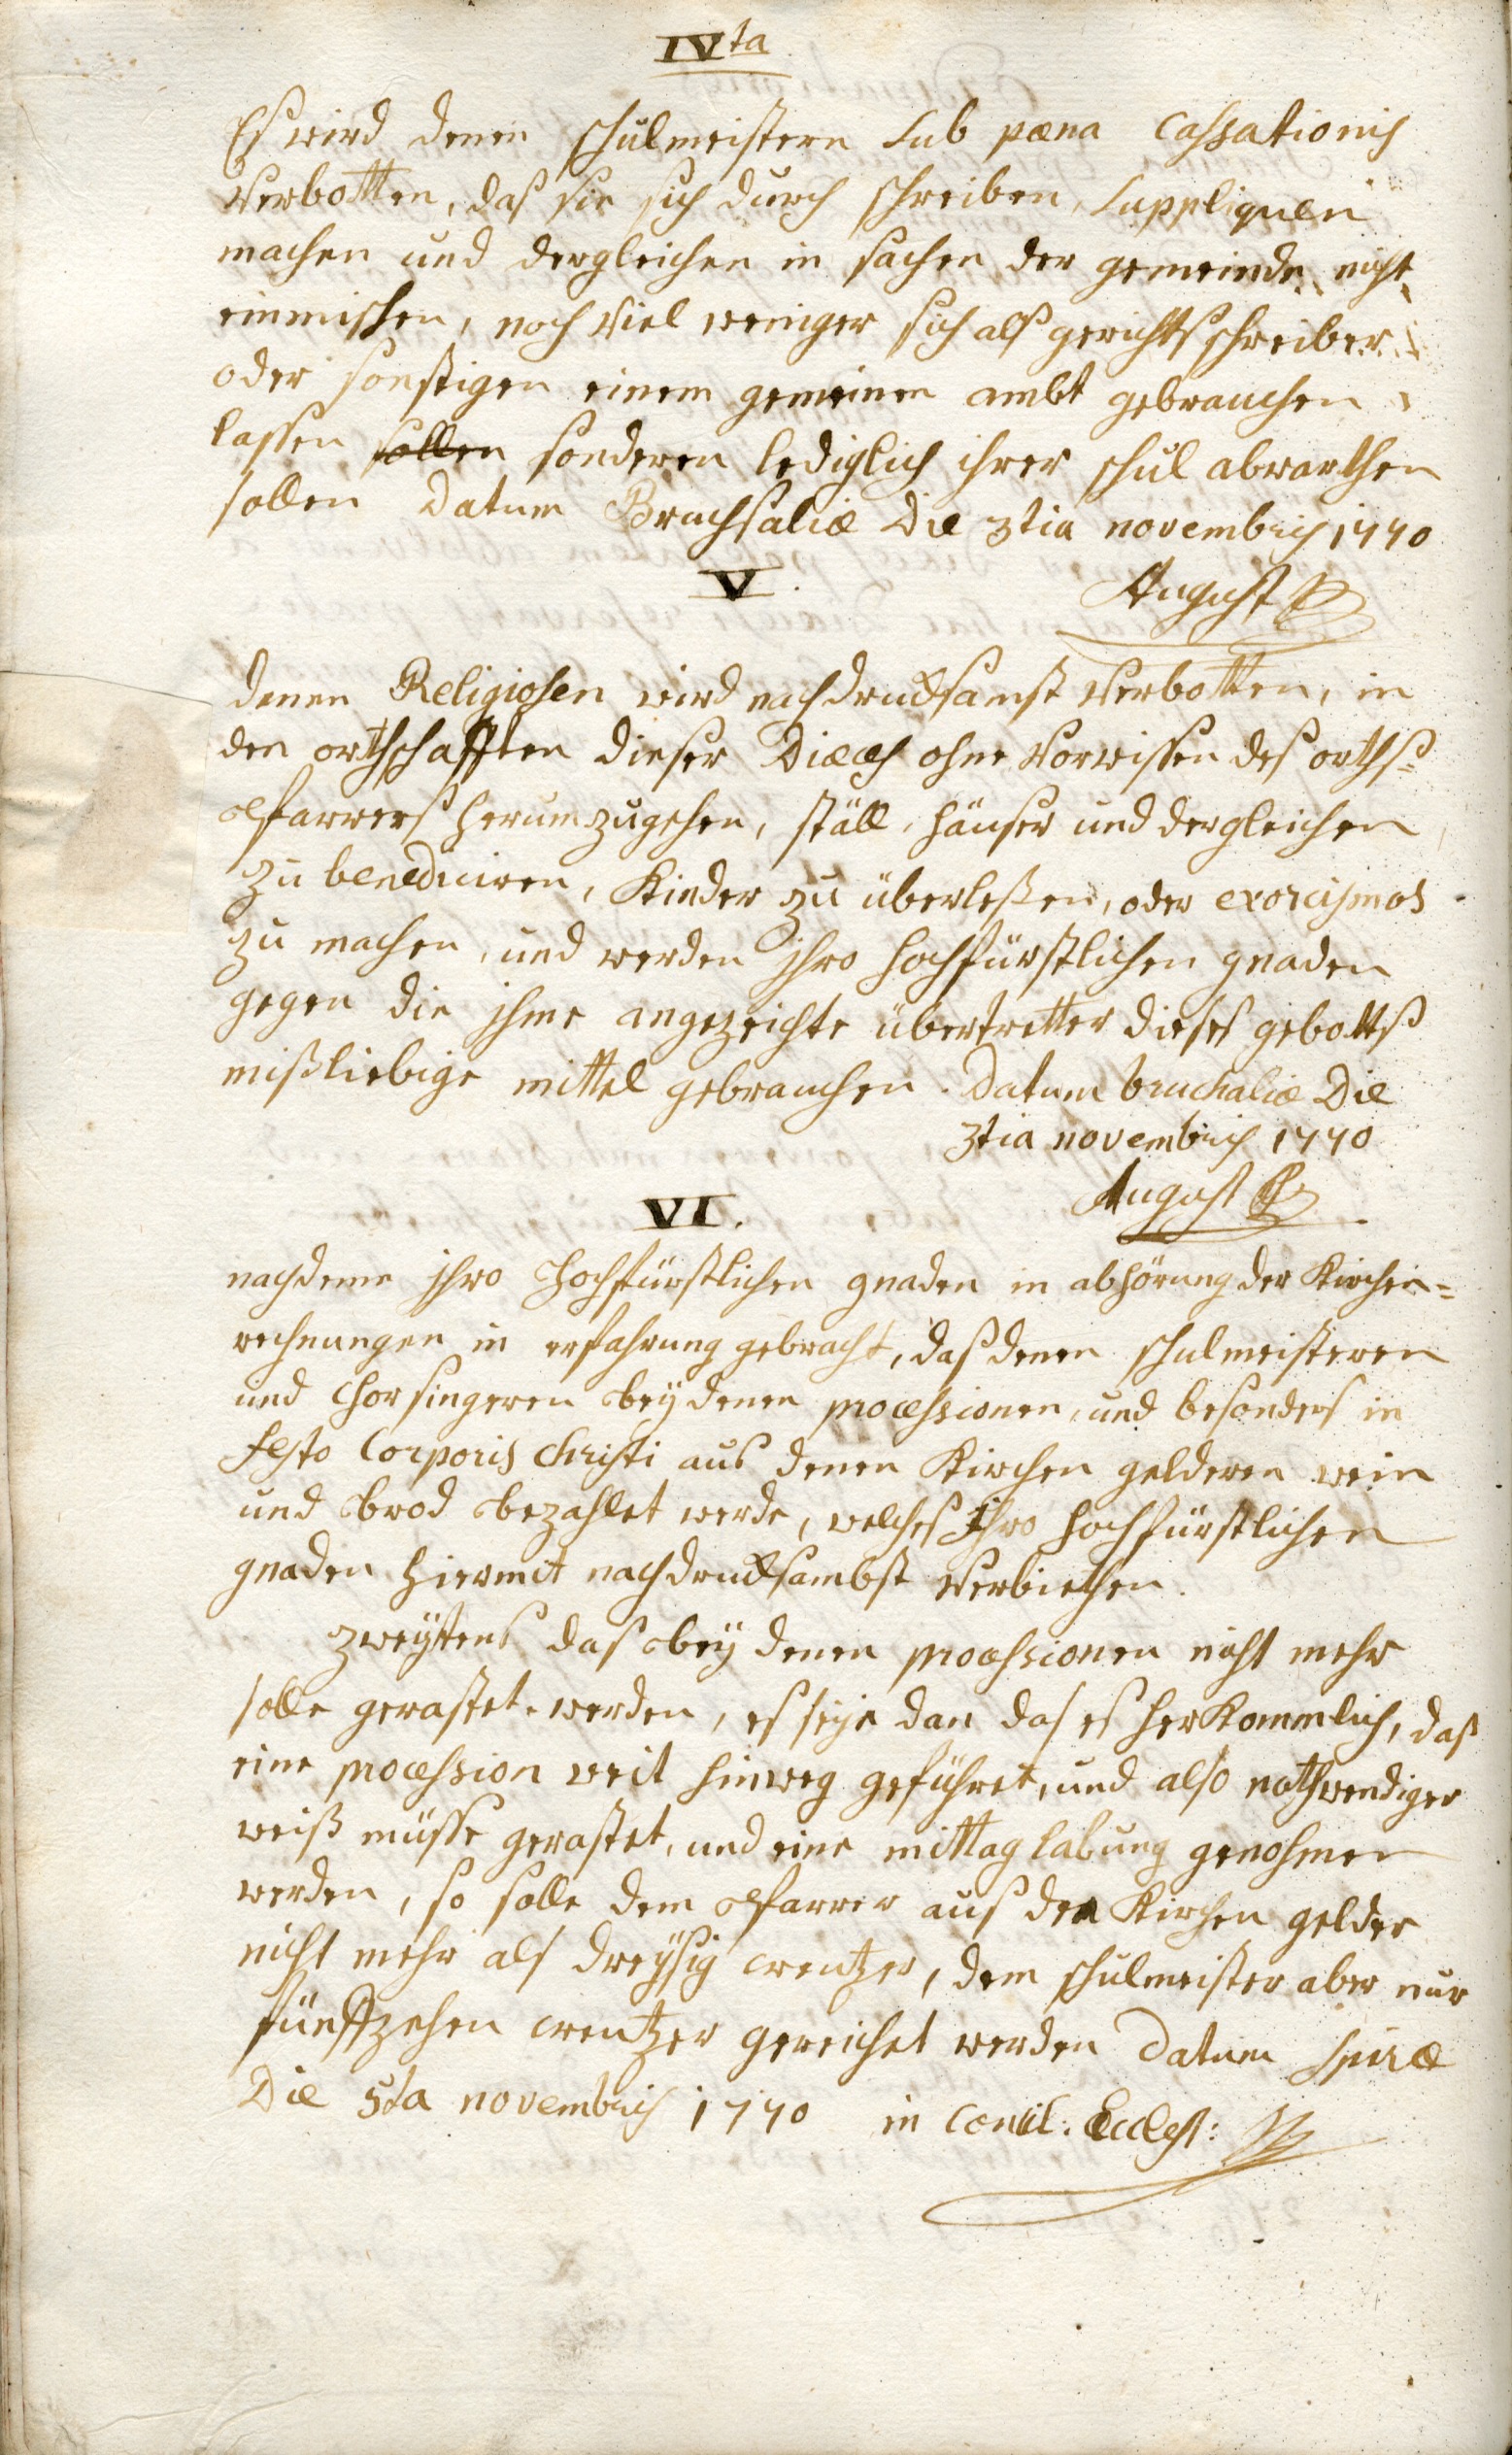 IVta
Es wird denen schulmeistern sub pœna Cassationis
verbotten, daß sie sich durch schreiben, suppliquen
machen und dergleichen in sachen der gemeinde nicht
einmischen, noch viel weniger sich als gerichtsschreiber
oder sonstigen einem gemeinen ambt gebrauchen
lassen sollen sonderen lediglich ihrer schul abwarthen
sollen Datum Bruchsaliæ Die 3tia novembris 1770
V.
August
denen Religiosen wird nachdrucksamst verbotten, in
den orthschafften dieser Diœces ohne vorwissen des orths=
pfarrers herumzugehen, ställ, häuser und dergleichen
zu benediciren, Kinder zu überleßen, oder exorcismos
zu machen, und werden ihro hochfürstlichen gnaden
gegen die ihme angezeichte übertretter dieses gebottß
mißliebige mittel gebrauchen. Datum bruchsaliæ Die
3tia novembris 1770
August
VI.
nachdeme ihro hochfürstlichen gnaden in abhörung der Kirchen=
rechnungen in erfahrung gebracht, daß denen schulmeisteren
und Chorsingeren bey denen processionen, und besonders in
festo Corporis Christi aus denen Kirchen gelderen wein
und brod bezahlet werde, welches Ihro hochfürstlichen
gnaden hiermit nachdrucksambst verbiethen.
zweytens das bey denen processionen nicht mehr
solle gerastet werden, es seye dan das es herkommlich, daß
eine procession weit hinweg geführet, und also nothwendiger
weiß müsse gerastet, und eine mittag labung genohmen
werden, so solle dem pfarrer auß den Kirchen gelder
nicht mehr als dreysig creutzer, dem schulmeister aber nur
fünffzehen creutzer gereichet werden Datum spiræ
Die 5ta novembris 1770 in Consil: Eccles: